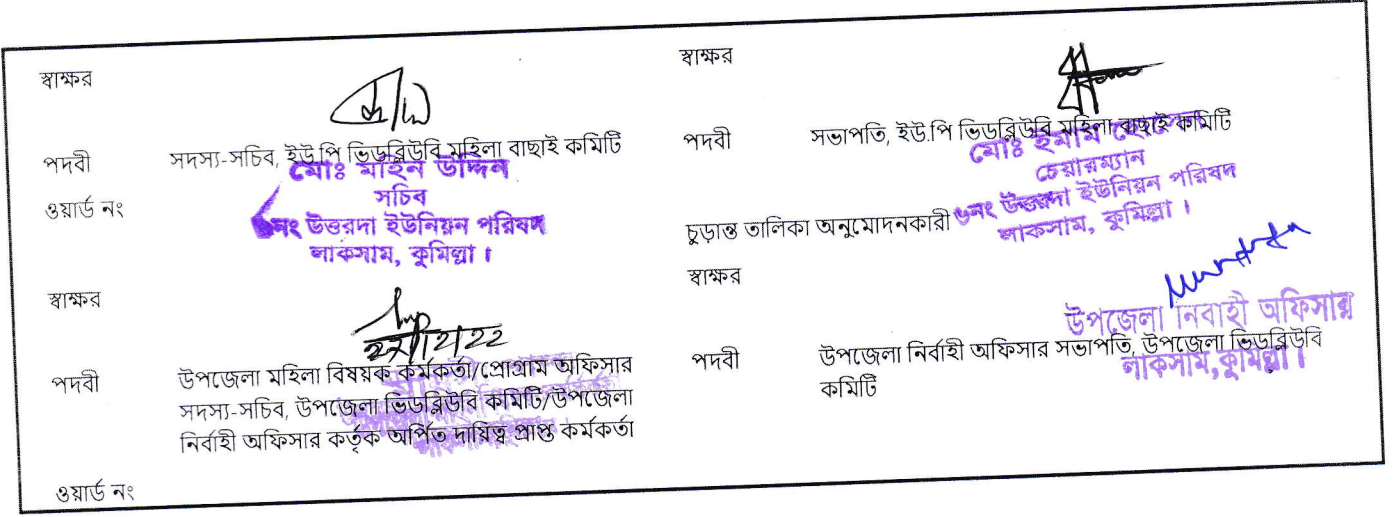 স্বাক্ষর
পদবী সদস্য-সচিব, ইউ.পি ভিডব্লিউবি মহিলা বাছাই কমিটি
মোঃ মহিন উদ্দিন
সচিব
ওয়ার্ড নং
৬নং উত্তরদা ইউনিয়ন পরিষদ
লাকসাম, কুমিল্লা।
স্বাক্ষর
22/12/22
পদবী উপজেলা মহিলা বিষয়ক কর্মকর্তা/প্রোগ্রাম অফিসার
সদস্য-সচিব, উপজেলা ভিডব্লিউবি কমিটি/উপজেলা
নির্বাহী অফিসার কর্তৃক অর্পিত দায়িত্ব প্রাপ্ত কর্মকর্তা
ওয়ার্ড নং
স্বাক্ষর
পদবী সভাপতি, ইউ.পি ভিডব্লিউবি মহিলা বাছাই কমিটি
মোঃ ইমাম হোসেন
চেয়ারম্যান
৬নং উত্তরদা ইউনিয়ন পরিষদ
লাকসাম, কুমিল্লা।
চুড়ান্ত তালিকা অনুমোদনকারী
স্বাক্ষর
উপজেলা নির্বাহী অফিসার
পদবী উপজেলা নির্বাহী অফিসার সভাপতি, উপজেলা ভিডব্লিউবি
কমিটি
লাকসাম, কুমিল্লা।